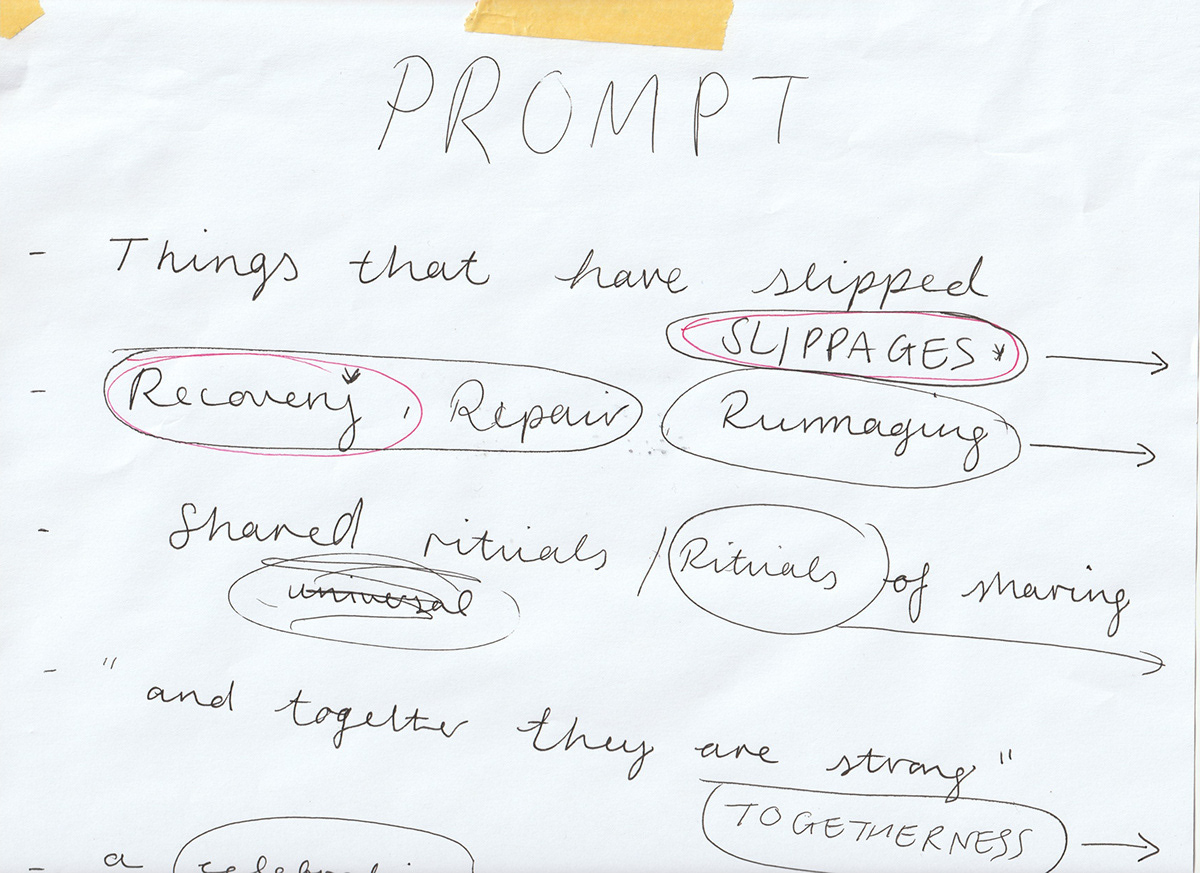 PROMPT
- Things that have slipped
SLIPPAGES
- Recovery, Repair Rummaging
- Shared rituals / Rituals of sharing
universal
- "and together they are strong"
TOGETHERNESS
- a